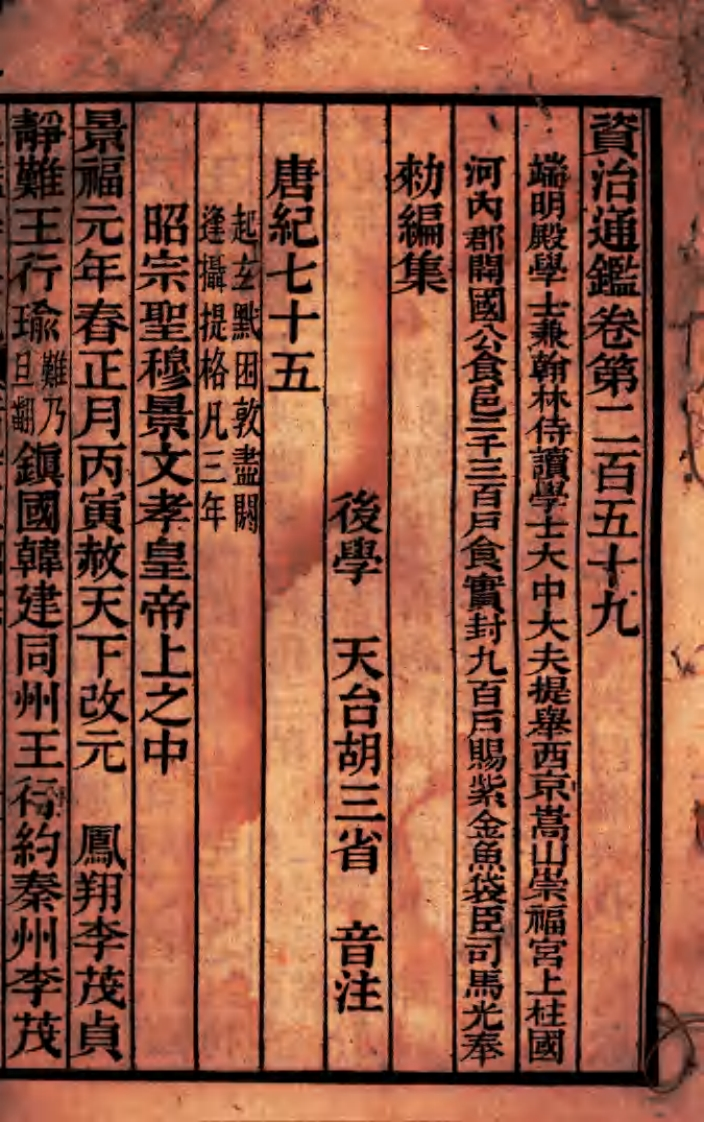 資治通鑑卷第二百五十九
端明殿學士兼翰林侍讀學士大中大夫提舉西京嵩山崇福宮上柱國
河內郡開國公食邑二千三百戶食實封九百戶賜紫金魚袋臣司馬光奉
勑編集
後學 天台胡三省 音注
唐紀七十五
起玄黓困敦盡閼
逢攝提格凡三年
昭宗聖穆景文孝皇帝上之中
景福元年春正月丙寅赦天下改元 鳳翔李茂貞
靜難王行瑜難乃旦翻鎭國韓建同州王行約秦州李茂